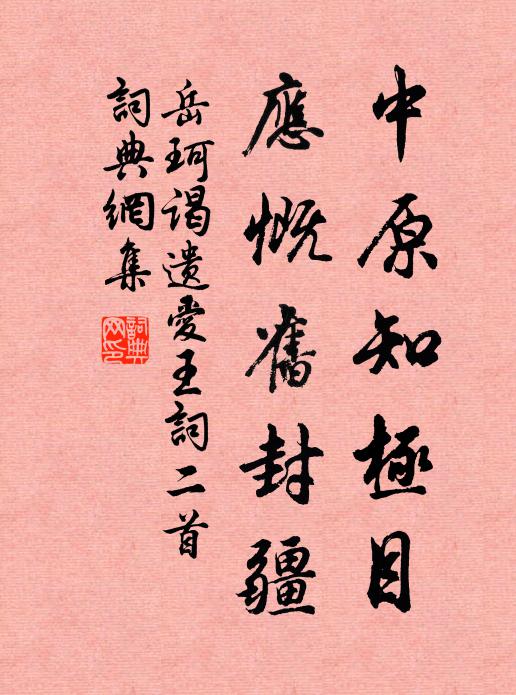 中原知極目
應慨舊封疆
岳珂謁遺愛王詞二首
詞典網集
詞典網印